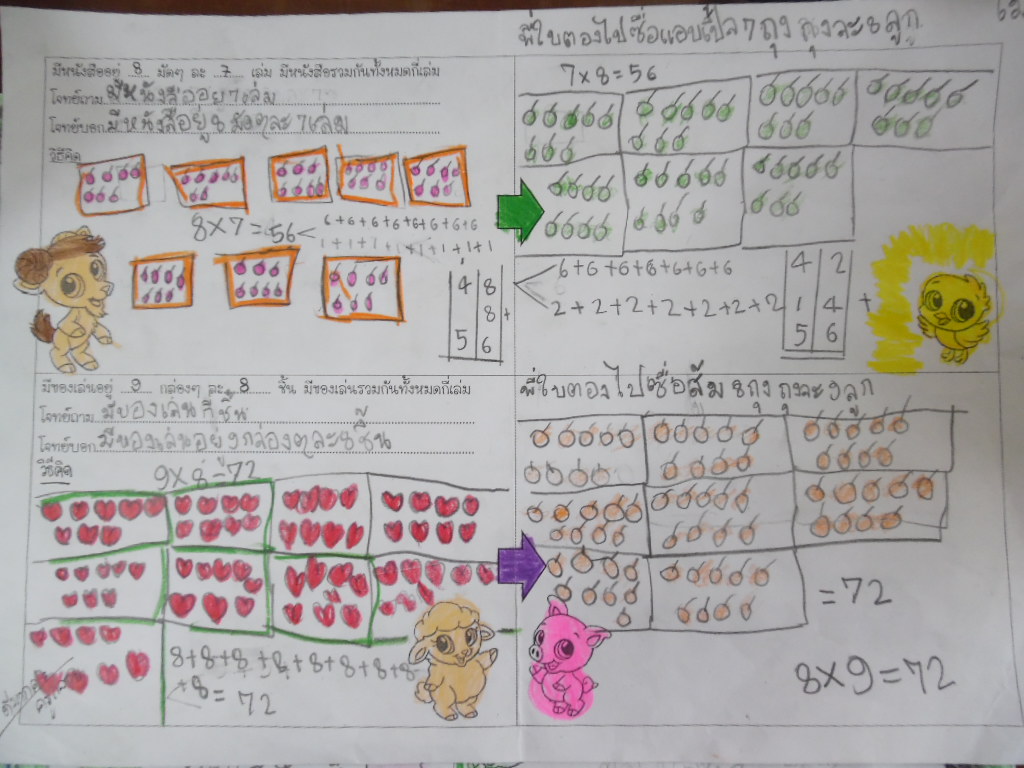 พี่ใบตองไปซื้อแอบเปิ้ล 7 ถุง ถุงละ 8 ลูก
มีหนังสืออยู่ 8 มัดๆ ละ 7 เล่ม มีหนังสือรวมกันทั้งหมดกี่เล่ม
โจทย์ถาม
โจทย์บอก มีหนังสืออยู่ 8 มัดๆละ 7 เล่ม
วิธีคิด
8×7=56
6+6+6+6+6+6+6+6
1+1+1+1+1+1+1+1
4 8
8 +
5 6
7×8=56
6+6+6+6+6+6+6
2+2+2+2+2+2+2+2
4 2
1 4 +
5 6
มีของเล่นอยู่ 9 กล่องๆ ละ 8 ชิ้น มีของเล่นรวมกันทั้งหมดกี่เล่ม
โจทย์ถาม มีของเล่นกี่ชิ้น
โจทย์บอก มีของเล่นอยู่ 9 กล่อง
วิธีคิด
9×8=72
8+8+8+8+8+8+8+8
+8=72
พี่ใบตองไปซื้อส้ม 8 ถุง ถุงละ 9 ลูก
=72
8×9=72